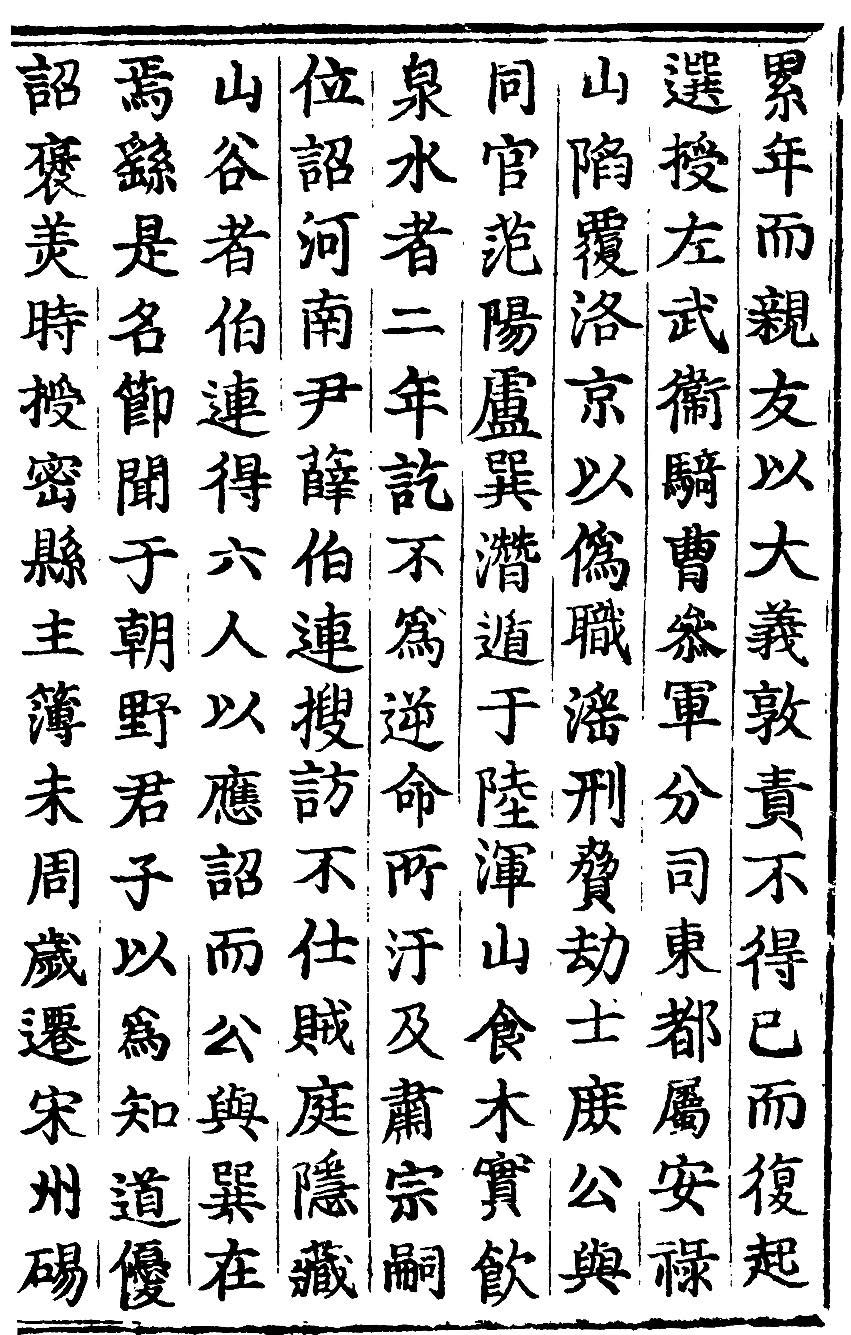 累年而親友以大義敦責不得已而復起
選授左武衞騎曹叅軍分司東都屬安祿
山陷覆洛京以僞職滛刑脅劫士庶公與
同官范陽盧巽潛遁于陸渾山食木實飲
泉水者二年訖不爲逆命所汙及肅宗嗣
位詔河南尹薛伯連搜訪不仕賊庭隱藏
山谷者伯連得六人以應詔而公與巽在
焉繇是名節聞于朝野君子以爲知道優
詔襃美時授密縣主簿未周歲遷宋州碭